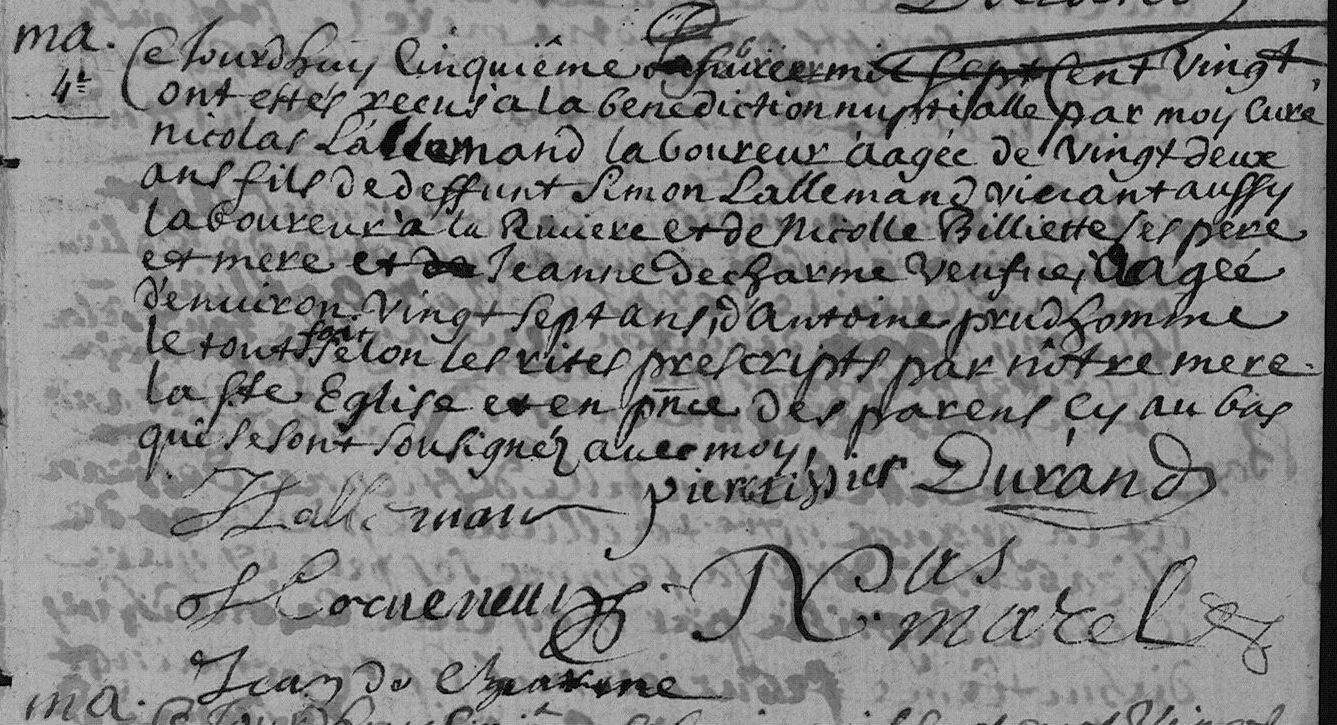 ma.
4e
Ce Jourdhuy Cinquiême mil sept Cent Vingt
ont estés recus a la benediction nuptialle par moy Curé
nicolas Lallemand laboureur âagée de Vingt deux
ans fils de deffunt Simon Lallemand viuant aussy
laboureur a la Riuiere et de Nicolle Billiette ses pere
et mere et de Jeanne decharme Veufue, âagée
d'enuiron Vingt sept ans, d'Antoine prudhomme
le tout fait selon les rites prescripts par nôtre mere
la ste Eglise et en pn̄ce des parens Cy au bas
qui se sont sousignéz auec moy,
Durand
N. as
marel
Jean de Charme
ma.